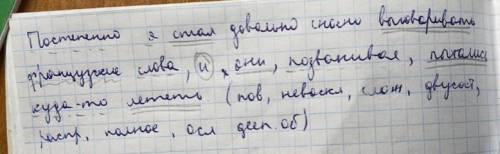 Постепенно я стал довольно сносно выговаривать
французские слова, и они, позванивая, пытались
куда-то лететь (пов, невоскл, слож, двусост,
распр, полное, осл дееп. об)